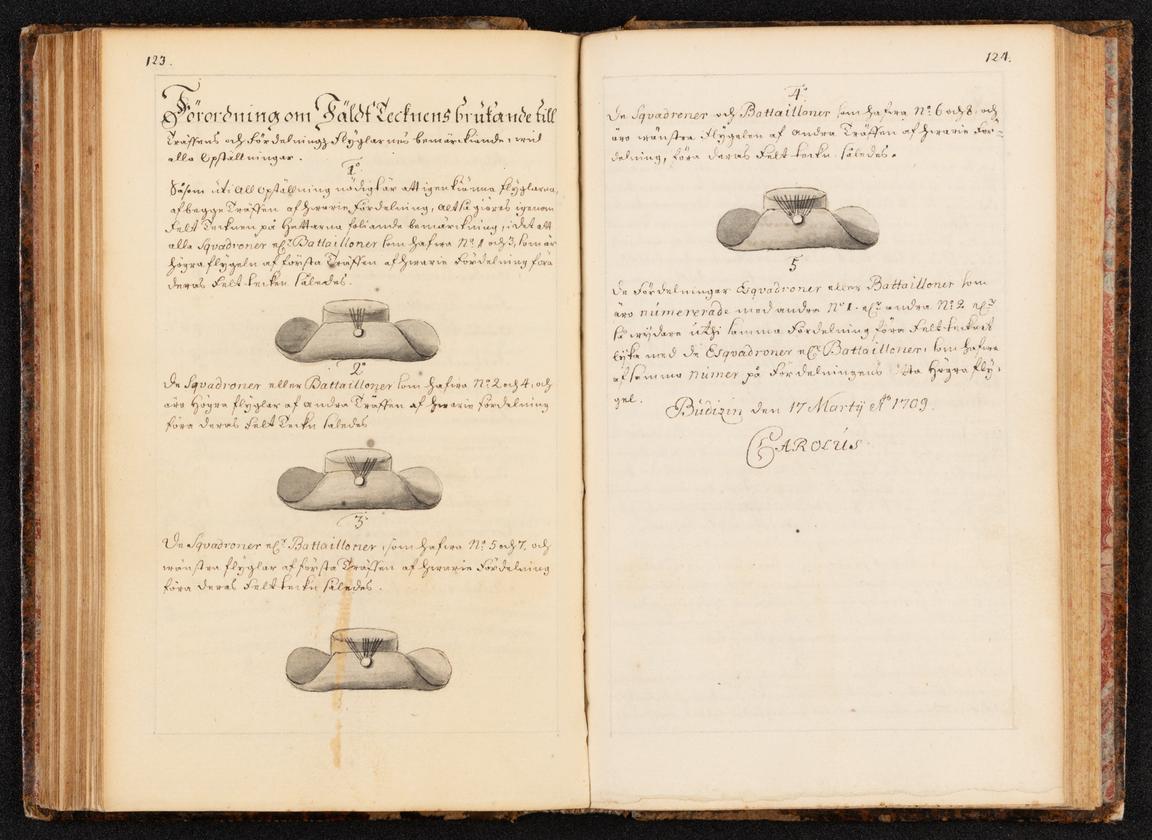 123.
Förordning om Fäldt Tecknens brukande till
Träffens och Fördelningz Flyglarnes bemärkiande, wid
alla Upställningar.
1º
Såsom uti all Upställning nödigt är att igenkiänna flyglarna,
af begge Träffen af hwarie Fördelning, altså giöres igenom
Felt Tecknen på Hattarna föliande bemärckning, i det att
alla Squadroner elr Battailloner som hafwa Nº 1 och 3, som är
högra flygeln af första Träffen af hwarie Fördelning föra
deras Felt-tecken således.
2º
De Squadroner eller Battailloner som hafwa Nº 2 och 4, och
äro Högra flyglar af andra Träffen af hwarie fördelning
föra deras Felt Teckn således
3º
De Squadroner elr Battailloner, som hafwa Nº 5 och 7, och
wänstra flyglar af första Träffen af hwarie Fördelning
föra deras Felt-teckn således.
124.
4º
De Squadroner och Battailloner som hafwa Nº 6 och 8, och
äro wänstra Flygelen af andra Träffen af hwarie För-
delning, föra deras Felt-teckn således.
5
De Fördelningar Esquadroner eller Battailloner som
äro númererade med andra Nº 1. elr andra Nº 2 elr
så widare uthi samma Fördelning föra Felt-tecknet
lyka med de Esquadroner elr Battailloner, som hafwa
af samma númer på Fördelningens Högra fly-
gel.
Búdizin den 17 Martÿ Aº 1709.
CAROLÚS